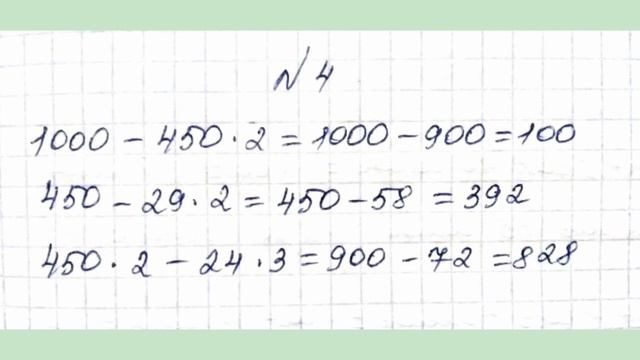 № 4
1000 - 450 · 2 = 1000 - 900 = 100
450 - 29 · 2 = 450 - 58 = 392
450 · 2 - 24 · 3 = 900 - 72 = 828